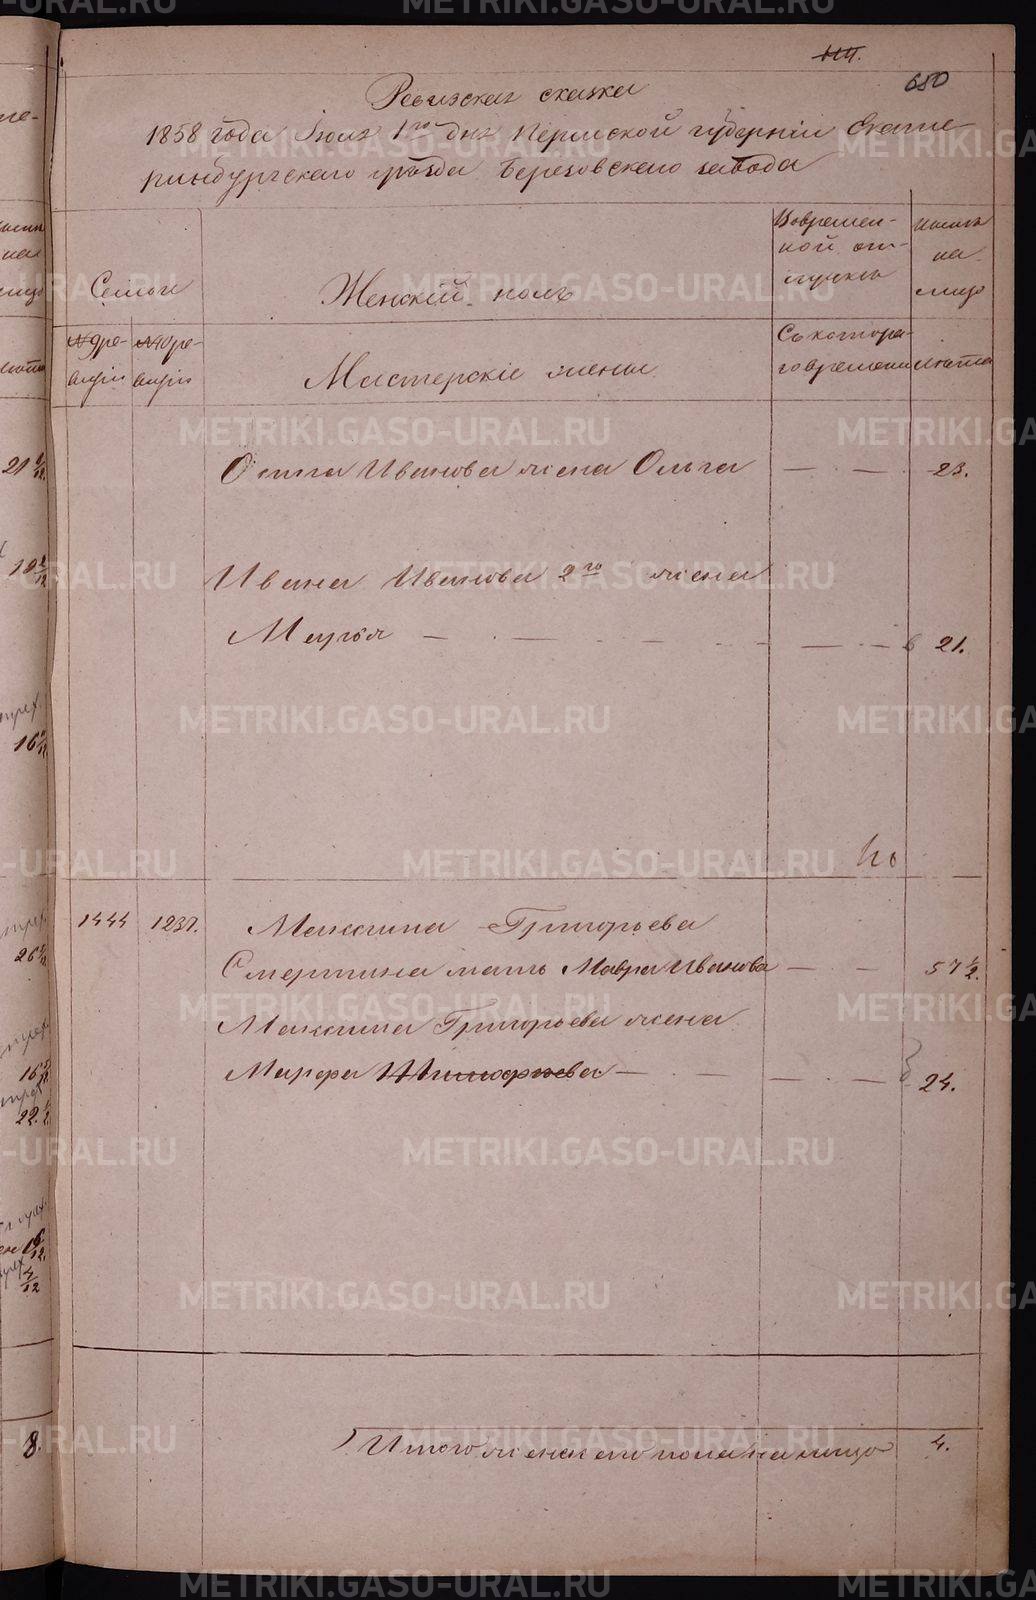 650
Ревизская сказка
1858 года Iюля 1го дня Пермской губернiи Екате-
ринбургскаго уѣзда Березовскаго завода
Семьи
Женскiй полъ
Во времен-
ной от-
лучкѣ
нынѣ
на-
лицо
№ 9 ре-
визiи
№ 10 ре-
визiи
Мастерскiе жены
Съ котора-
го времени
лѣта
Осипа Иванова жена Ольга — · — · 23.
Ивана Иванова 2го жена
Марья — · — · — · — 21.
1444 1237. Максима Григорьева
Смертина мать Мавра Иванова — · — 57 ½.
Максима Григорьева жена
Марфа Тимофеева — · — · — 24.
Итого женскаго пола на лицо 4.
21
19
16
26
16
22.
8.
METRIKI.GASO-URAL.RU